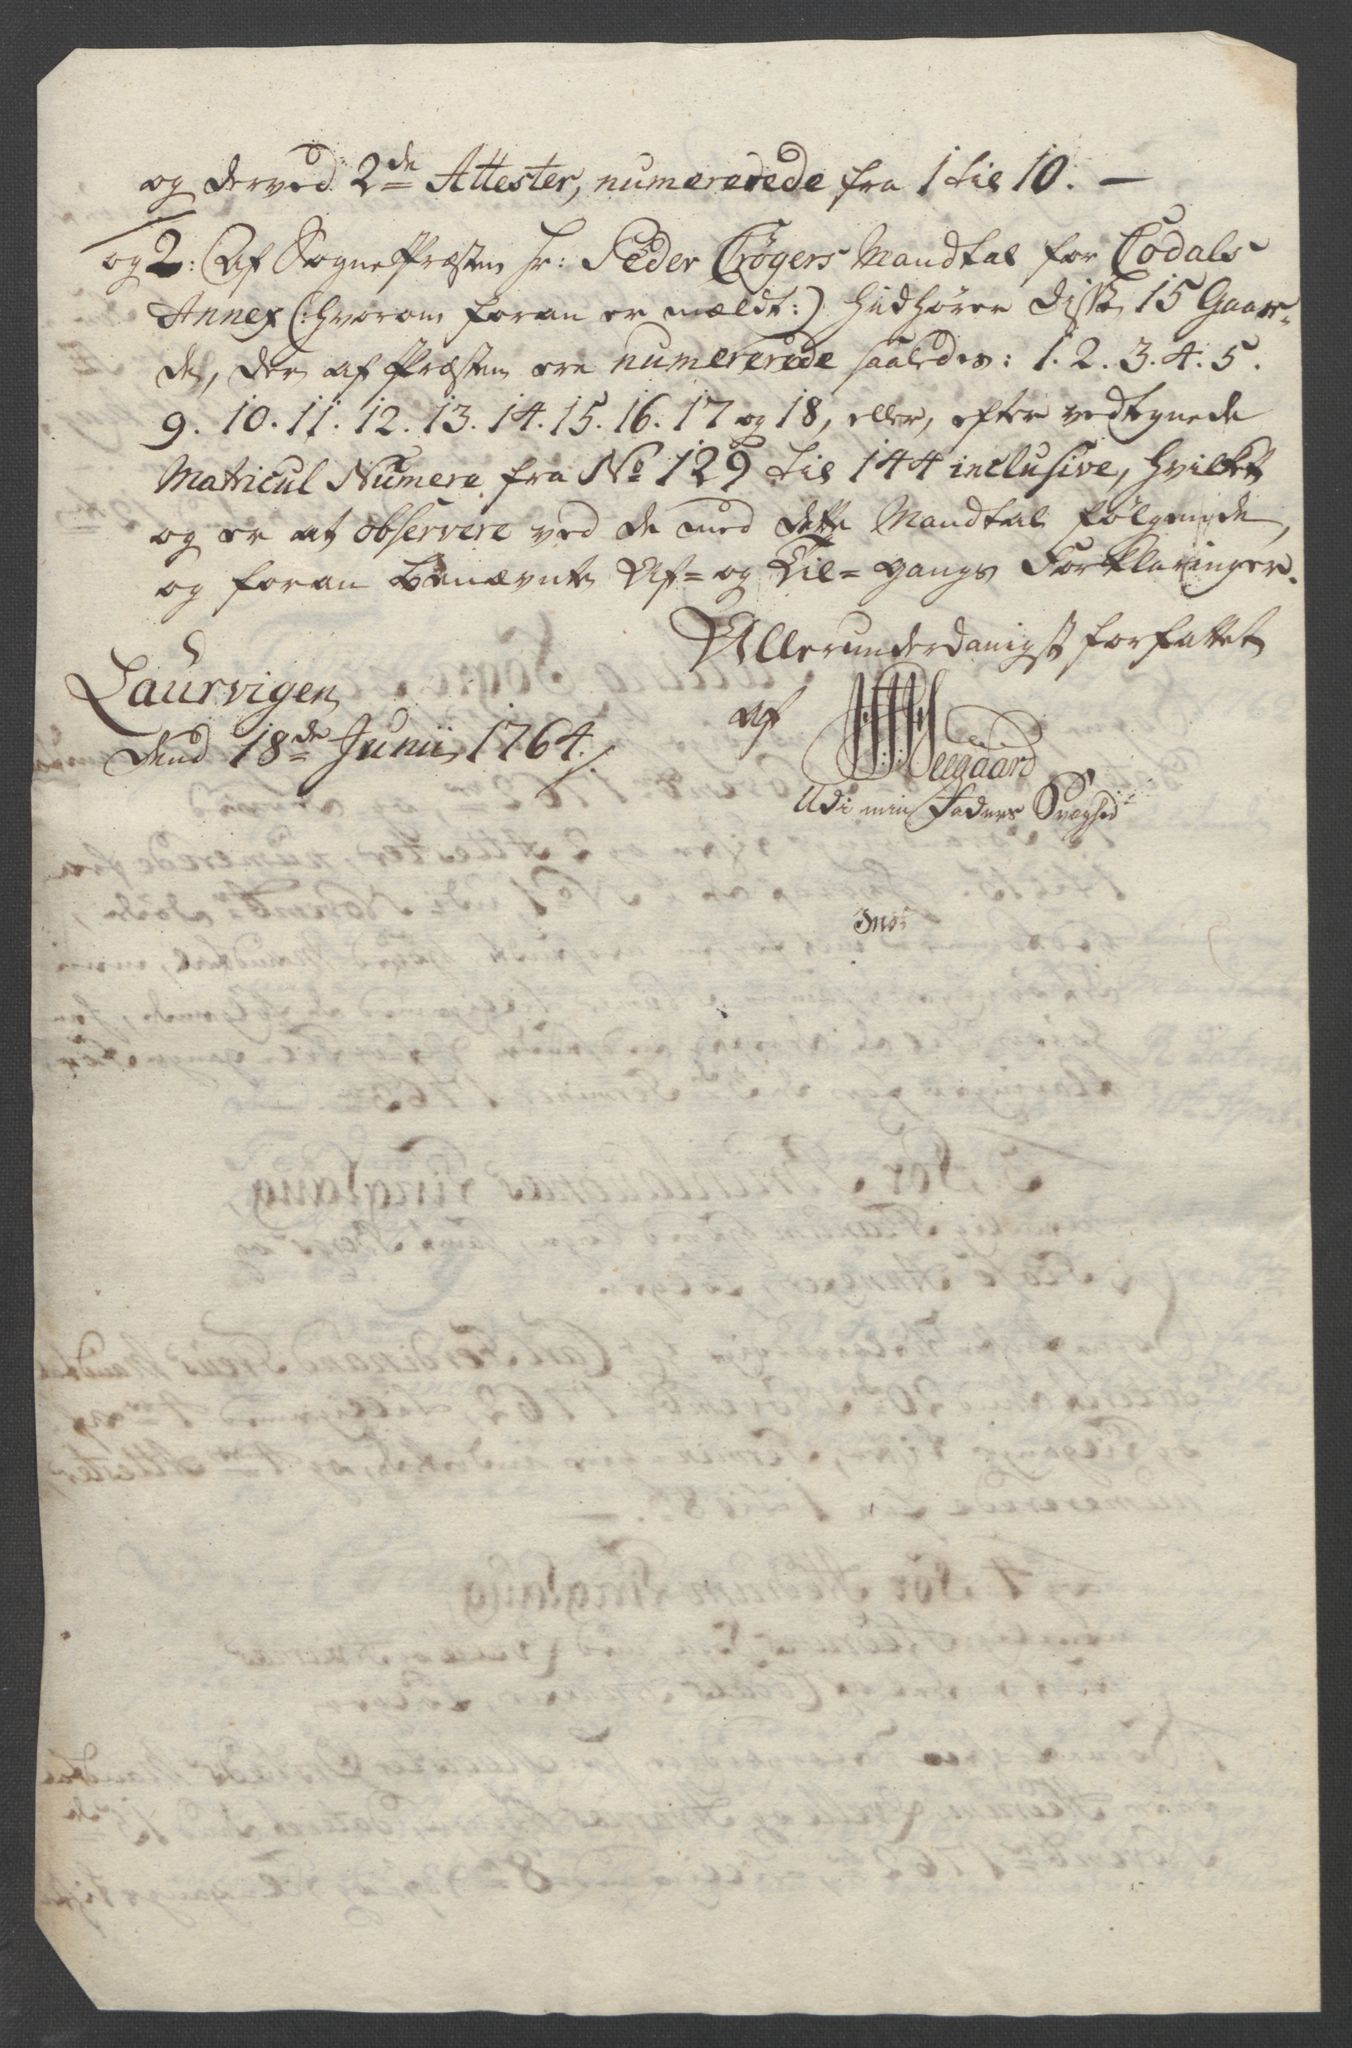 og derved 2de Attester, numererede fra 1 til 10. —
og 2: Af SognePræsten Hr: Peder Crøgers Mandtal for Codals
Annex (: hvorom foran er meldt :) hidhører disse 15 Gaar-
de, der af Præsten ere numererede saaledes: 1. 2. 3. 4. 5.
9. 10. 11. 12. 13. 14. 15. 16. 17 og 18, eller, efter vedtegnede
Matricul Numere fra No 129 til 144 inclusive, hvilket
og er at observere ved de med dette Mandtal følgende,
og foran benævnte Af- og Til-gangs Forklaringer.
Allerunderdanigst forfattet
Laurvigen
af
Dend 18de Junii 1764.
Seegaard
Udi min Faders Svaghed